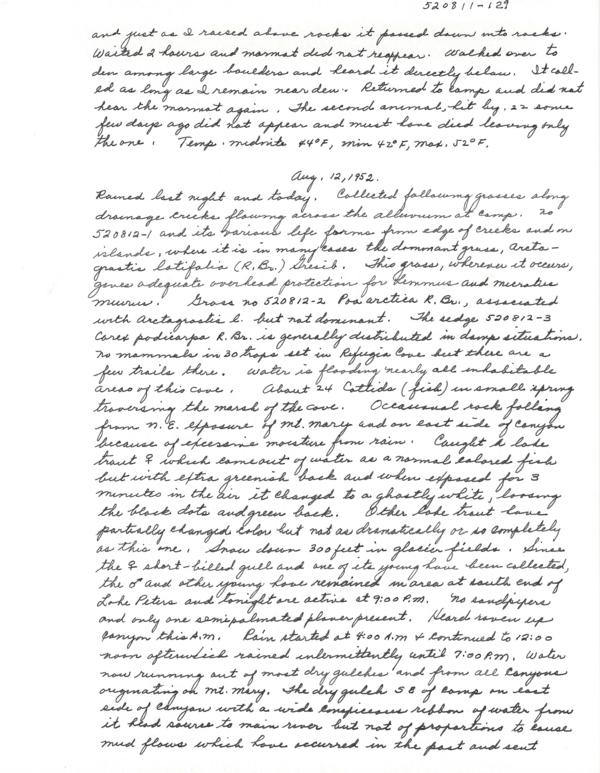 520811-129
and just as I raised above rocks it passed down into rocks.
Waited 2 hours and marmot did not reappear. Walked over to
den among large boulders and heard it directly below. It call-
ed as long as I remain near den. Returned to camp and did not
hear the marmot again. The second animal, hit by .22 some
few days ago did not appear and must have died leaving only
the one. Temp. midnite 44°F, min 42°F, max. 52°F.
Aug. 12, 1952.
Rained last night and today. Collected following grasses along
drainage creeks flowing across the alluvium at camp. No
520812-1 and its various life forms from edge of creeks and on
islands, where it is in many cases the dominant grass, Arcta-
grostis latifolia (R. Br.) Griseb. This grass, wherever it occurs,
gives adequate overhead protection for Lemmus and microtus
muurus. Grass no 520812-2 Poa arctica R. Br., associated
with Arctagrostis l. but not dominant. The sedge 520812-3
Carex podicarpa R. Br. is generally distributed in damp situations.
No mammals in 30 traps set in Refugia Cove but there are a
few trails there. Water is flooding nearly all inhabitable
areas of this cove. About 24 Cottids (fish) in small spring
traversing the marsh of the cove. Occasional rock falling
from N.E. exposure of Mt. Mary and on east side of canyon
because of excessive moisture from rain. Caught a lake
trout ♀ which came out of water as a normal colored fish
but with extra greenish back and when exposed for 3
minutes in the air it changed to a ghastly white, loosing
the black dots and green back. Other lake trout have
partially changed color but not as dramatically or so completely
as this one. Snow down 300 feet in glacier fields. Since
the ♀ short-billed gull and one of its young have been collected,
the ♂ and other young have remained in area at south end of
Lake Peters and tonight are active at 9:00 P.M. No sandpipers
and only one semipalmated plover present. Heard raven up
canyon this A.M. Rain started at 4:00 A.M & continued to 12:00
noon afterwhich rained intermittently until 7:00 P.M. Water
now running out of most dry gulches and from all canyons
originating on Mt. Mary. The dry gulch SE of camp on east
side of canyon with a wide conspicuous ribbon of water from
it head source to main river but not of proportions to cause
mud flows which have occurred in the past and sent